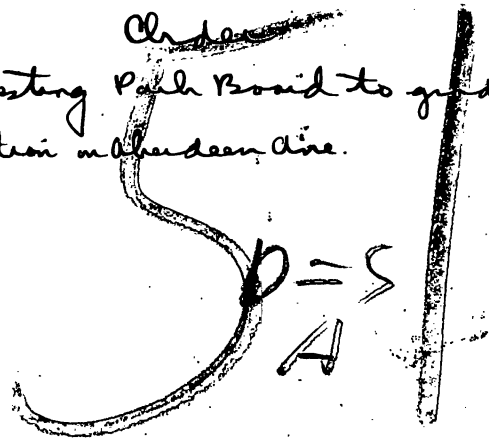 Order
sting Park Board to grad
tion on Aberdeen Ave.
51
D = S
A